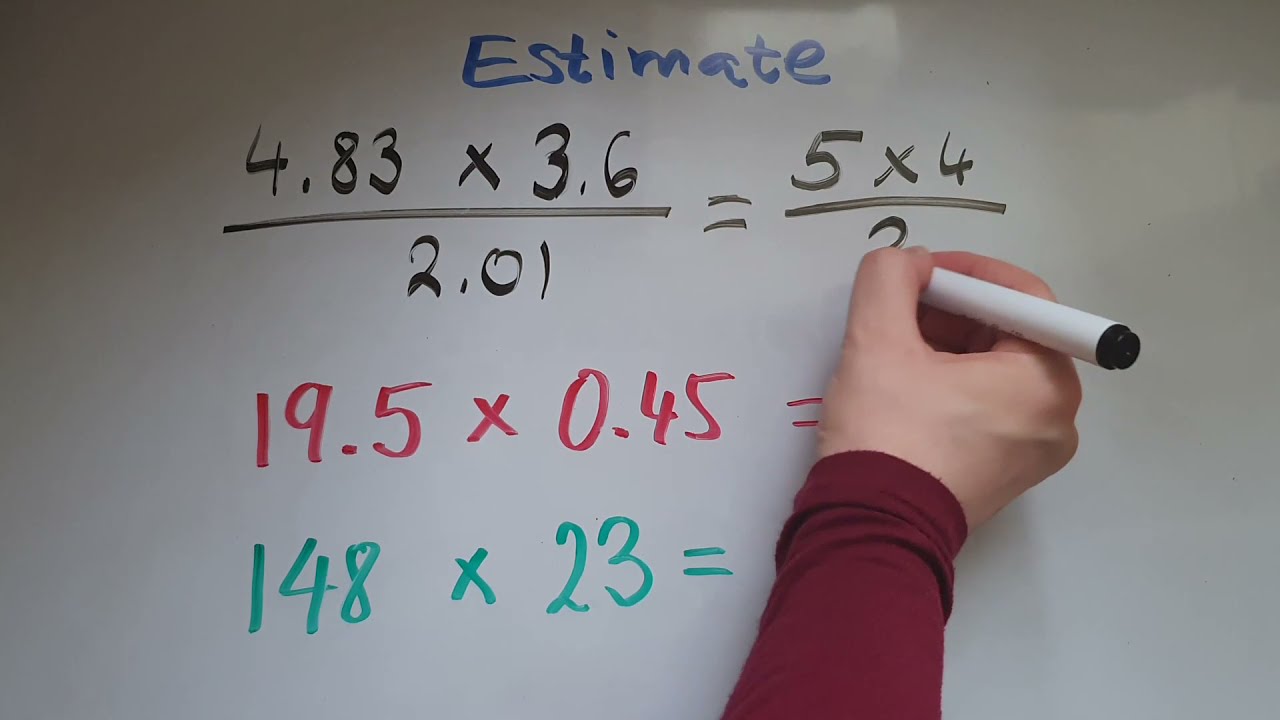 Estimate
4.83 × 3.6 = 5 × 4
2.01 2
19.5 × 0.45 =
148 × 23 =